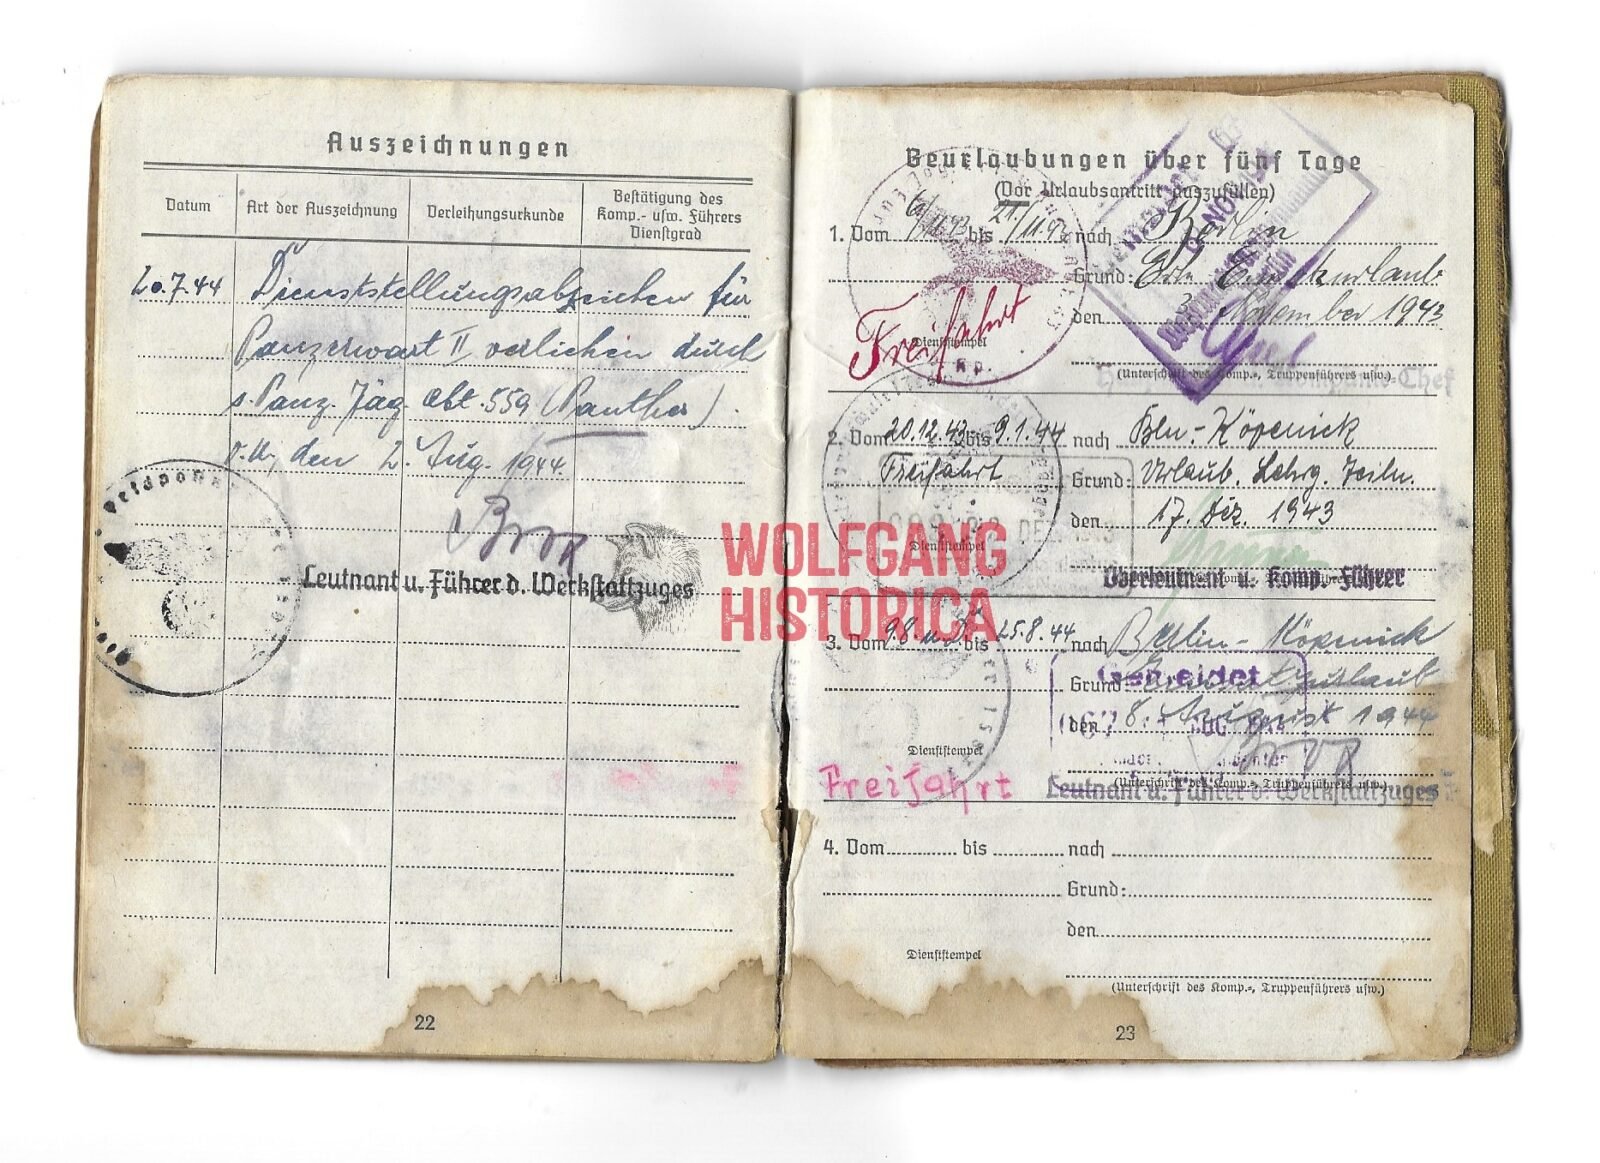 Auszeichnungen
Datum
Art der Auszeichnung
Verleihungsurkunde
Bestätigung des
Komp.- usw. Führers
Dienstgrad
20.7.44 Dienststellungsabzeichen für
Panzerwart II verliehen durch
s. Panz. Jäg. Abt. 559 (Panther).
O.U., den 2. Aug. 1944.
Feldpost
Leutnant u. Führer d. Werkstattzuges
22
WOLFGANG
HISTORICA
Beurlaubungen über fünf Tage
(Vor Urlaubsantritt auszufüllen)
1. Vom 6/11.43 bis 21./11.43 nach Berlin
Grund: Erh.
den 3. November 1943
Freifahrt
Dienststempel
Kp.
(Unterschrift des Komp.-, Truppenführers usw.)
2. Vom 20.12.43 bis 9.1.44 nach Bln.-Köpenick
Freifahrt
Grund: Urlaub. Lehrg. Teiln.
den 17. Dez. 1943
Dienststempel
Oberleutnant u. Komp.-Führer
3. Vom 9.8. bis 25.8.44 nach Berlin-Köpenick
Gemeldet
Grund
den 8. August 1944
Dienststempel
(Unterschrift des Komp.-, Truppenführers usw.)
Freifahrt
Leutnant u. Führer d. Werkstattzuges
4. Vom bis nach
Grund:
den
Dienststempel
(Unterschrift des Komp.-, Truppenführers usw.)
23